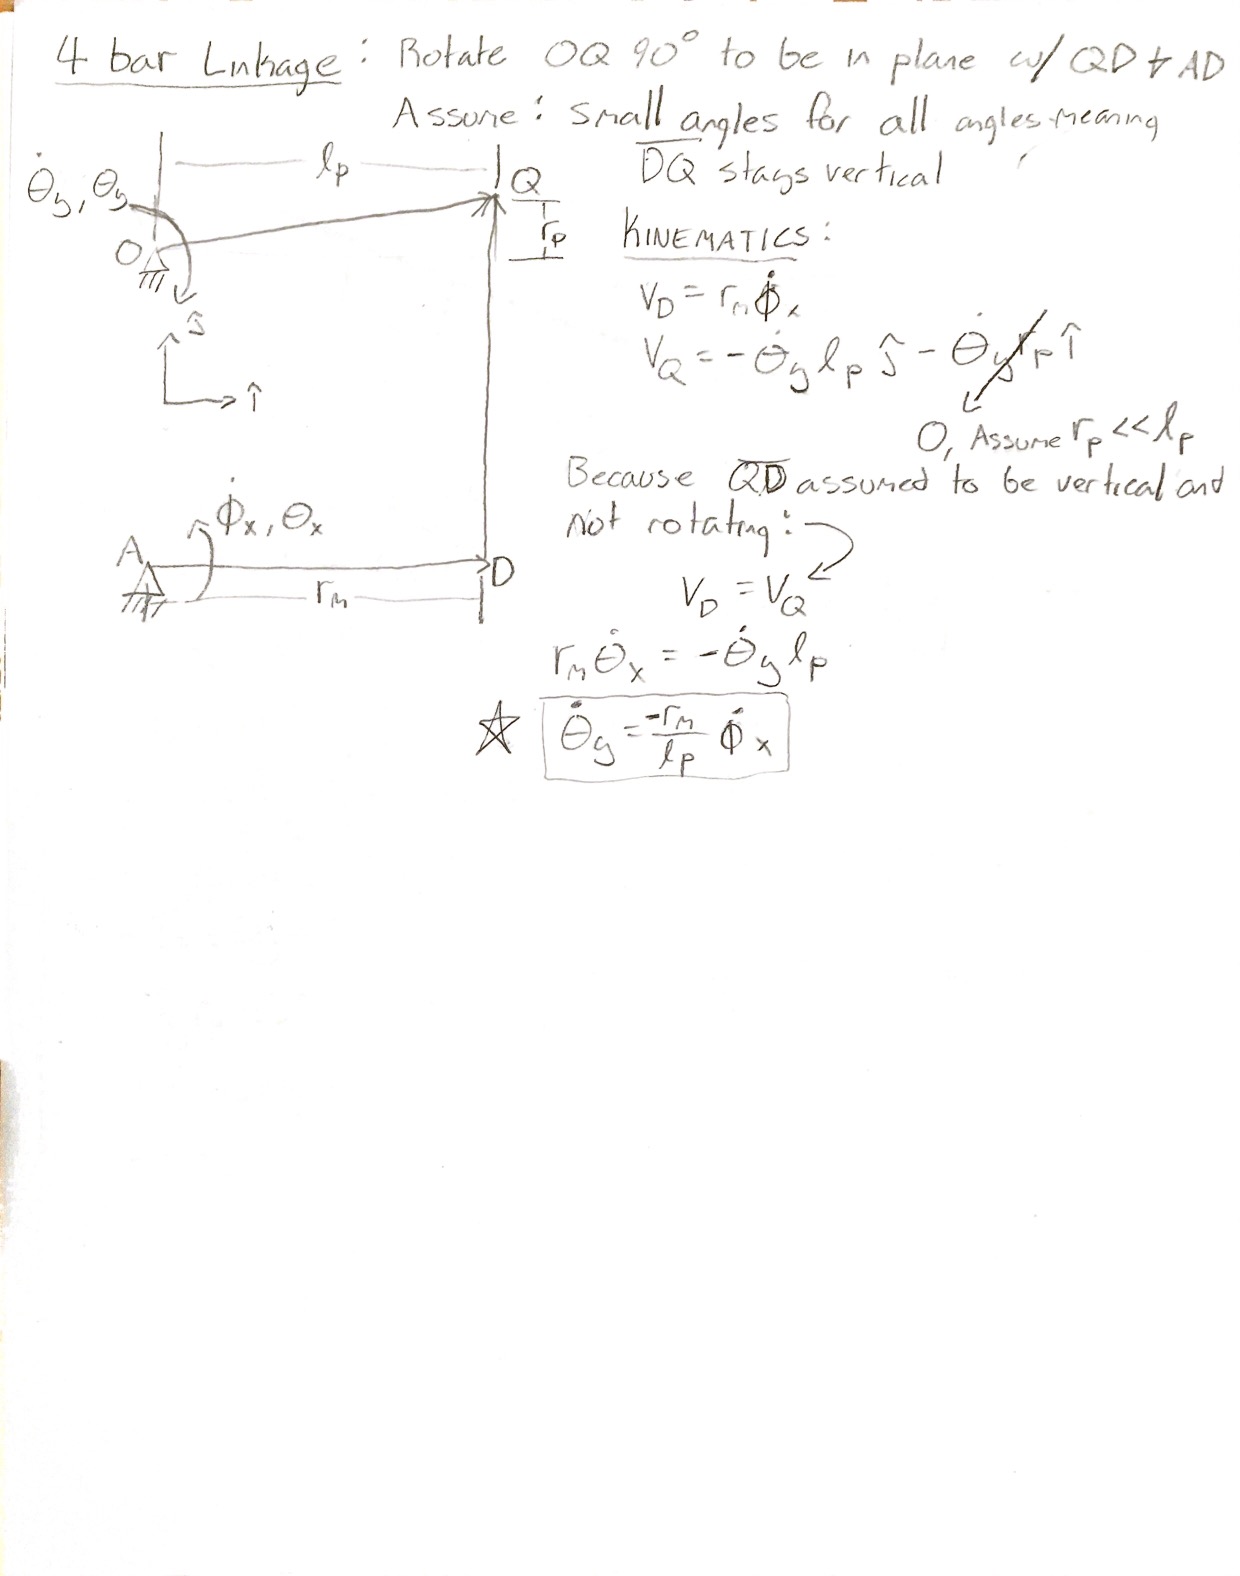 4 bar Linkage: Rotate OQ 90° to be in plane w/ QD & AD
Assume: Small angles for all angles meaning
D̅Q̅ stays vertical
θ̇y, θy
lp
Q
rp
O
ĵ
î
KINEMATICS:
VD = rm φ̇x
VQ = -θ̇y lp ĵ - θ̇y rp î
0, Assume rp << lp
Because Q̅D̅ assumed to be vertical and
not rotating:
VD = VQ
φ̇x, θx
A
D
rm
rm θ̇x = -θ̇y lp
θ̇y = -rm/lp φ̇x